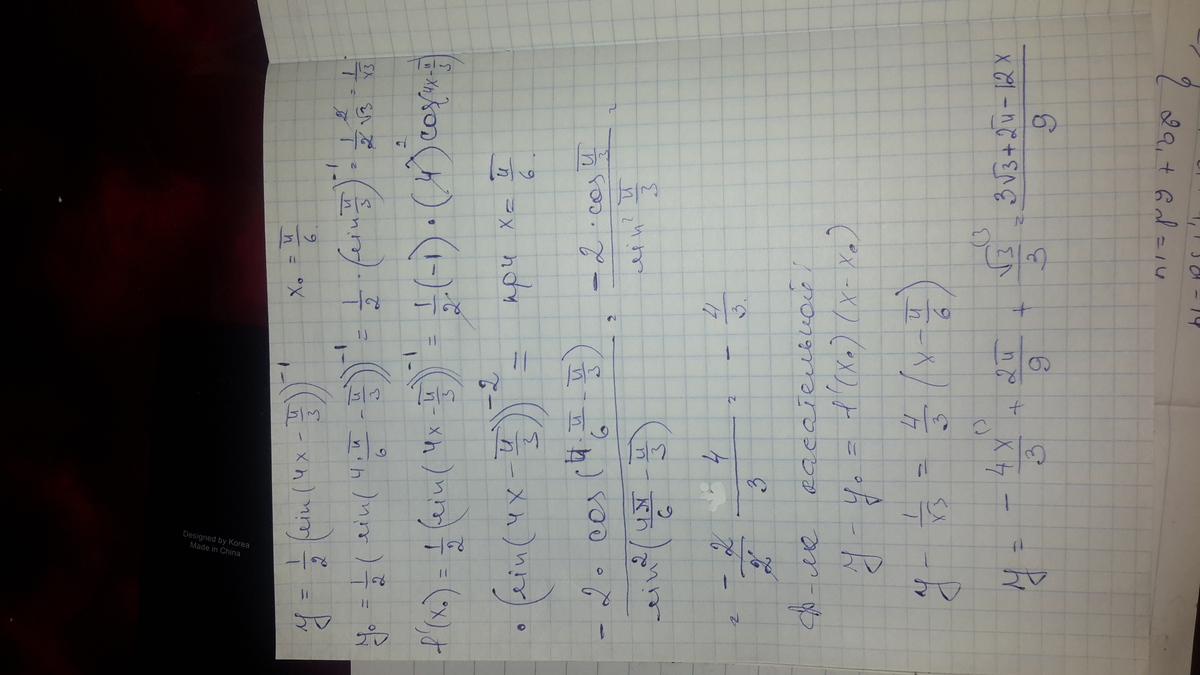 y = 1/2 (sin(4x - π/3))^-1 x₀ = π/6.
y₀ = 1/2 (sin(4·π/6 - π/3))^-1 = 1/2 · (sin π/3)^-1 = 1/2 2/√3 = 1/√3.
f'(x₀) = 1/2 (sin(4x - π/3))^-1 = 1/2 (-1) · (4) 2 cos(4x - π/3)
· (sin(4x - π/3))^-2 = при x = π/6.
-2 · cos(4·π/6 - π/3) / sin²(4π/6 - π/3) = -2 · cos π/3 / sin² π/3 =
= - 2/2 4/3 = - 4/3.
Ф-ла касательной:
y - y₀ = f'(x₀)(x - x₀)
y - 1/√3 = 4/3 (x - π/6)
y = - 4x/3 + 2π/9 + √3/3 = 3√3 + 2π - 12x / 9
Designed by Korea
Made in China